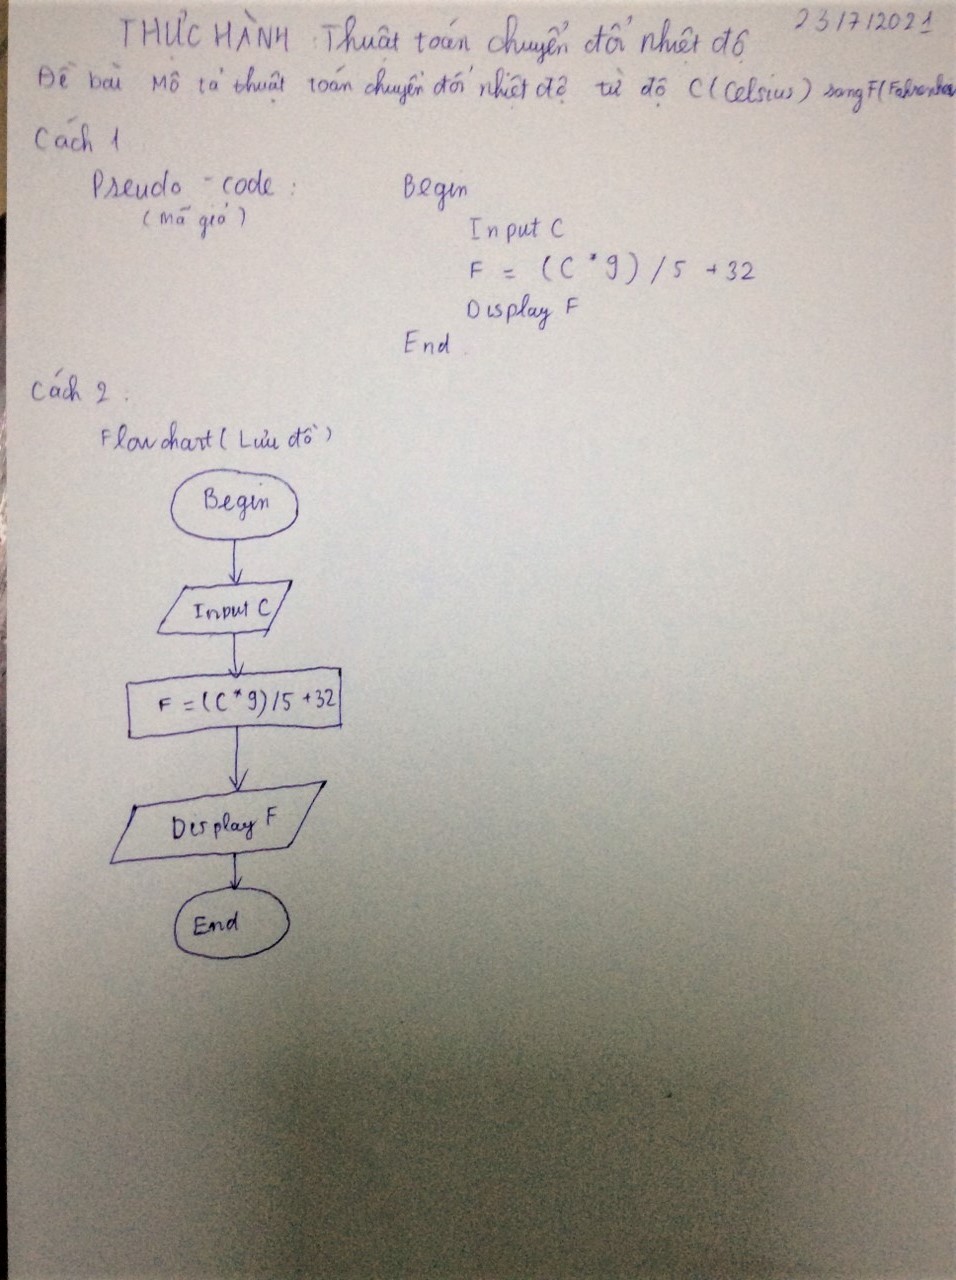 23/7/2021
THỰC HÀNH : Thuật toán chuyển đổi nhiệt độ
Đề bài Mô tả thuật toán chuyển đổi nhiệt độ từ độ C (Celsius) sang F (Fahrenhei
Cách 1
Pseudo - code :
(Mã giả)
Begin
Input C
F = (C * 9) / 5 + 32
Display F
End
Cách 2 :
Flow chart ( Lưu đồ )
Begin
Input C
F = (C * 9) / 5 + 32
Display F
End